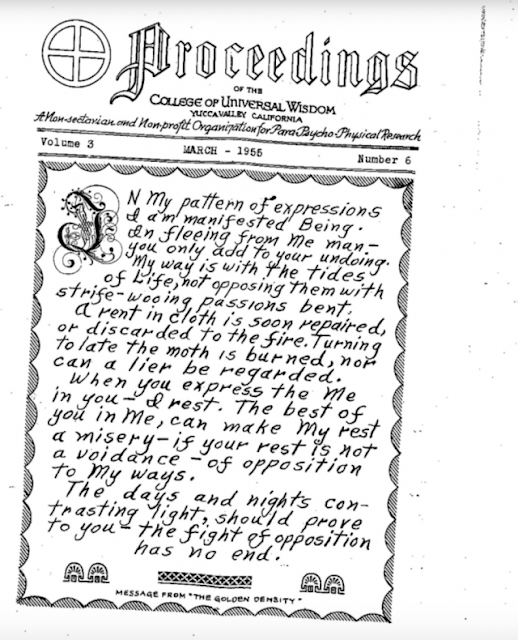 Proceedings
OF THE
COLLEGE OF UNIVERSAL WISDOM
YUCCA VALLEY CALIFORNIA
A Non-sectarian and Non-profit Organization for Para Psycho-Physical Research
Volume 3 MARCH - 1955 Number 6
IN My pattern of expressions
I am manifested Being.
In fleeing from Me man-
you only add to your undoing.
My way is with the tides
of Life, not opposing them with
strife-wooing passions bent.
A rent in cloth is soon repaired,
or discarded to the fire. Turning
to late the moth is burned, nor
can a lier be regarded.
When you express the Me
in you- I rest. The best of
you in Me, can make My rest
a misery-if your rest is not
a voidance-of opposition
to My ways.
The days and nights con-
trasting light, should prove
to you-the fight of opposition
has no end.
MESSAGE FROM "THE GOLDEN DENSITY"